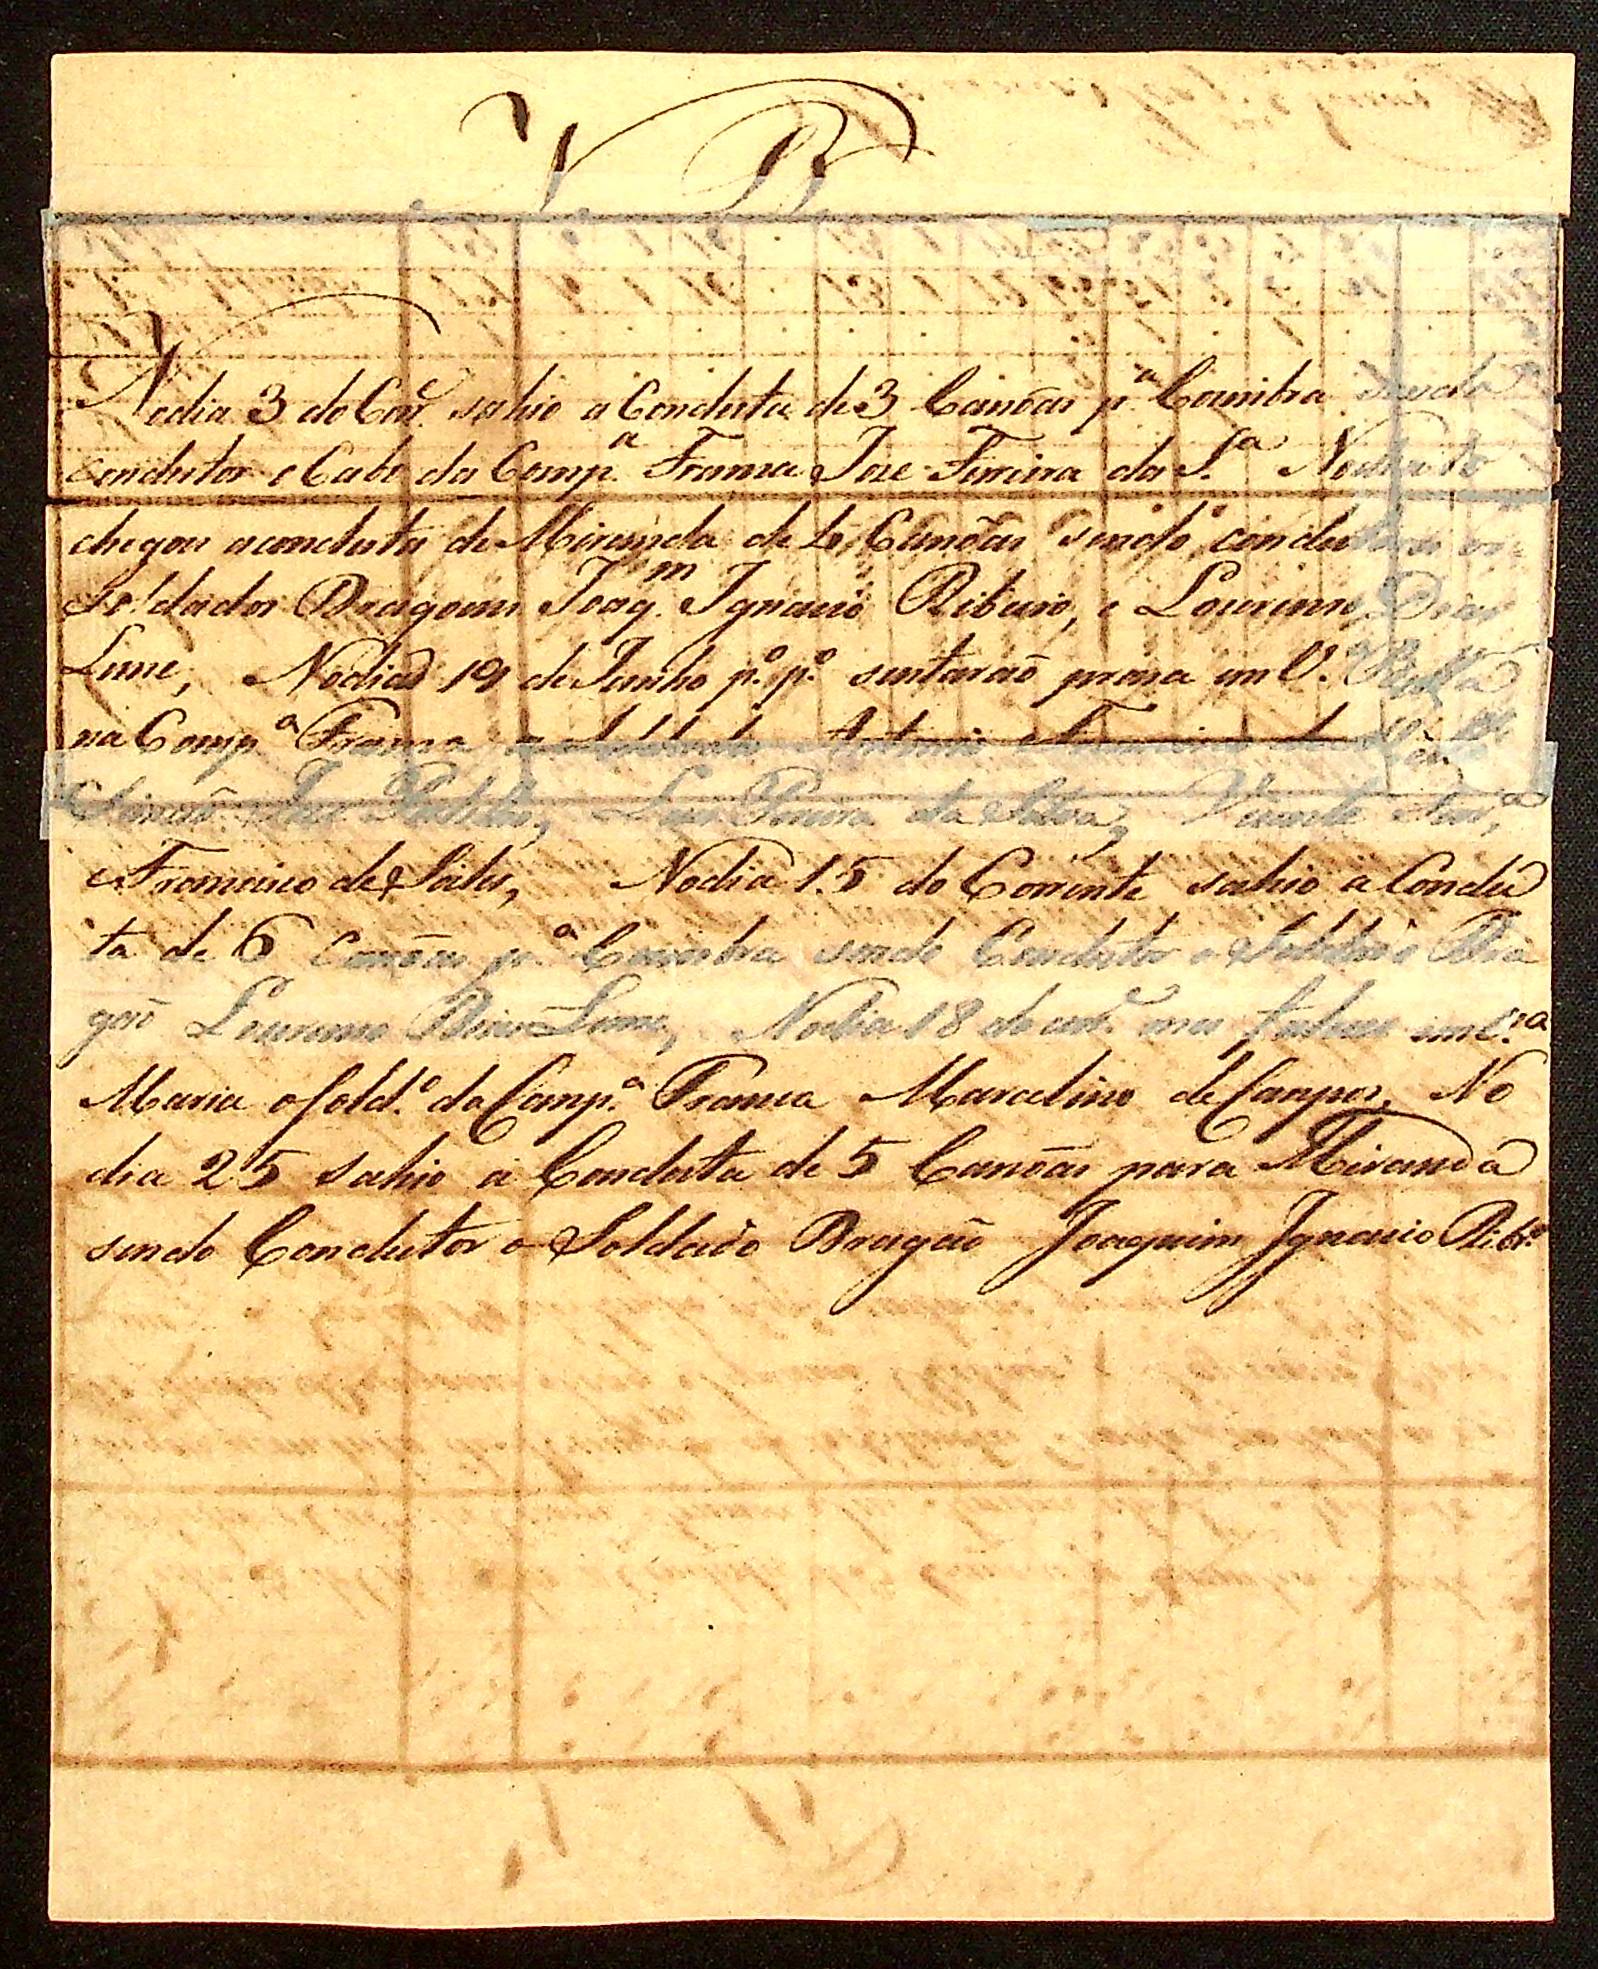 N B
No dia 3 do Corr.e sahio a Conducta de 3 Canôas p.a Coimbra sendo
Condutor o Cabo da Comp.a Franca Joze Ferreira da S.a No dia
chegou a conducta de Miranda de Canôas sendo condutores os
Soldados Dragoens Joaq.m Ignacio Ribeiro, e Lourenço Dias
Leme, No dia 19 de Junho p.o p.o sentarão praça em V.a Bella
na Comp.a Franca
Joze Pereira da Silva, Vicente
e Francisco de Sales, No dia 15 do Corrente sahio a Condu
ta de 6 Canôas p.a Coimbra sendo Condutor o Soldado Dra
gão Lourenço Dias Leme, No dia 18 do corr.e mez faleceu em V.a
Maria o Sold.o da Comp.a Franca Marcelino de Campos, No
dia 25 sahio a Conducta de 5 Canôas para Miranda
sendo Condutor o Soldado Dragão Joaquim Ignacio Ribr.o